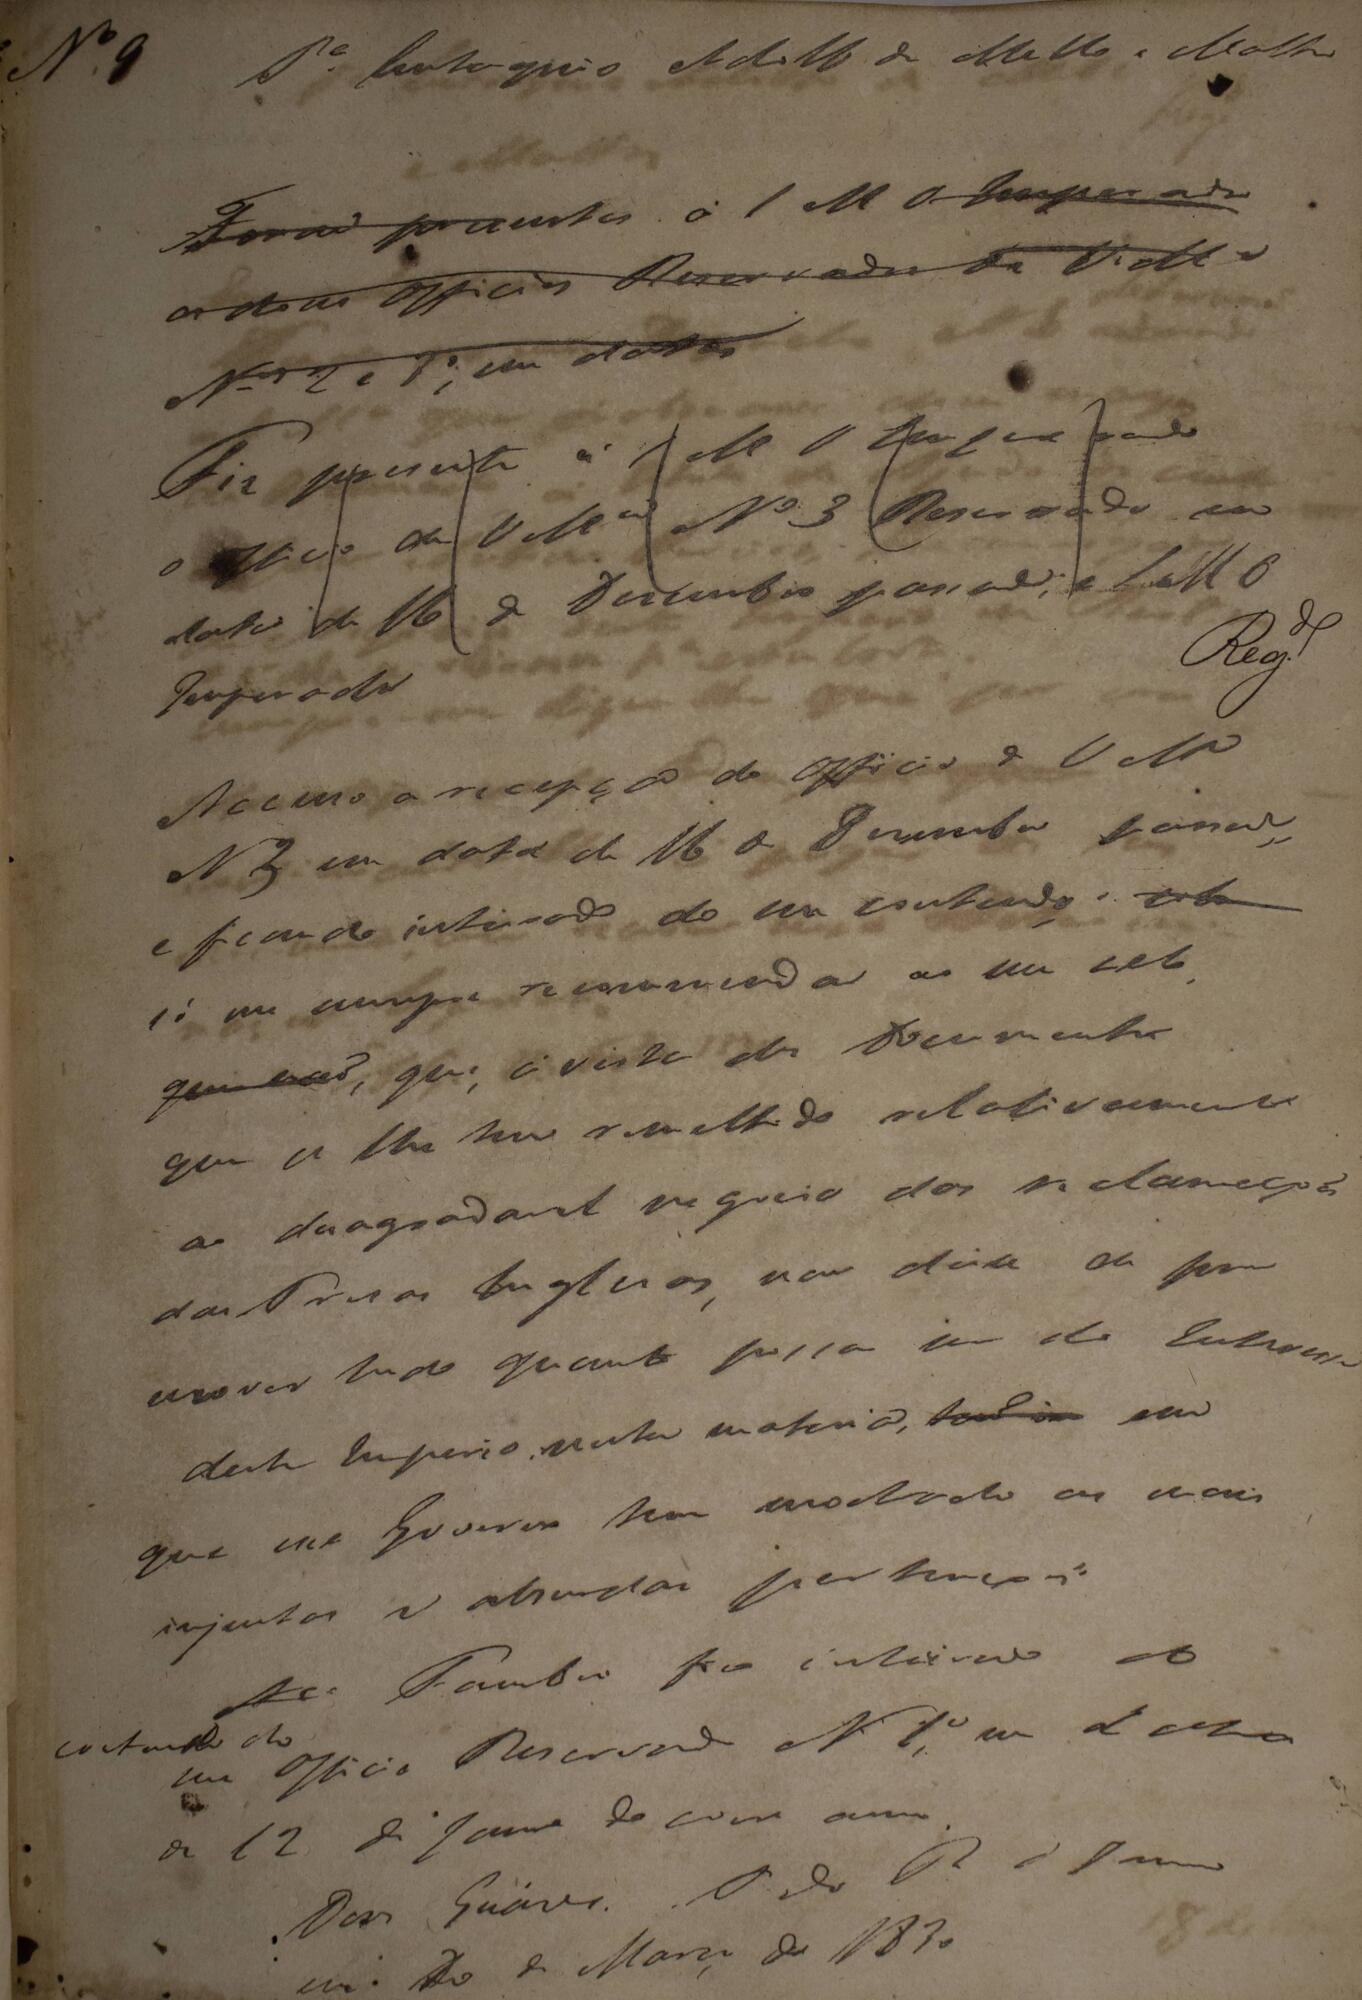 Nº 9
Sr. Eustaquio Adolfo de Mello e Mattos
Forão presentes á S M O Imperador
os dous Officios Reservados de V. Mce
Nos 2 e 1º, em datas
Fiz presente á S M O Imperador
o Officio de V Mce Nº 3 Reservado em
data de 16 de Dezembro passado, e S M O
Imperador
Regdo
Accuso a recepção do Officio de V Mce
N 3 em data de 16 de Dezembro passado,
e ficando inteirado do seu contendo,
só me cumpre recommendar ao seu zelo,
que, á vista dos Documentos
que se lhe tem remettido relativamente
ao desagradavel negocio das reclamações
das Presas Inglesas, nao deixe de pro
mover tudo quanto possa ser do Interesse
deste Imperio nesta materia, em
que esse Governo tem mostrado as mais
injustas e absurdas pertenções
Tambem fico inteirado do
contendo do
seu Officio Reservado N 1º, em data
de 12 de Janro do corre anno.
Deos Guarde. P do R de Janro
em de Março de 1830